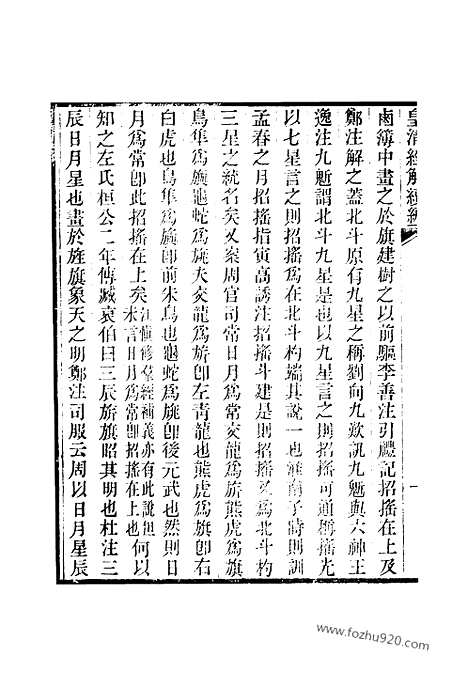 皇清經解續編
鹵簿中畫之於旗建樹之以前驅李善注引禮記招搖在上及
鄭注解之蓋北斗原有九星之稱劉向九歎訊九鬿與六神王
逸注九鬿謂北斗九星是也以九星言之則招搖可通稱搖光
以七星言之則招搖爲在北斗杓端其說一也淮南子時則訓
孟春之月招搖指寅高誘注招搖斗建是則招搖又為北斗杓
三星之統名矣又案周官司常日月爲常交龍爲旂熊虎爲旗
鳥隼爲旟龜蛇爲旐夫交龍爲旂卽左青龍也熊虎爲旗卽右
白虎也鳥隼爲旟卽前朱鳥也龜蛇爲旐卽後元武也然則日
月爲常卽此招搖在上矣江愼修羣經補義亦有此說但未言日月爲常卽招搖在上也何以
知之左氏桓公二年傳臧哀伯曰三辰旂旗昭其明也杜注三
辰日月星也畫於旌旗象天之明鄭注司服云周以日月星辰
www.fozhu920.com